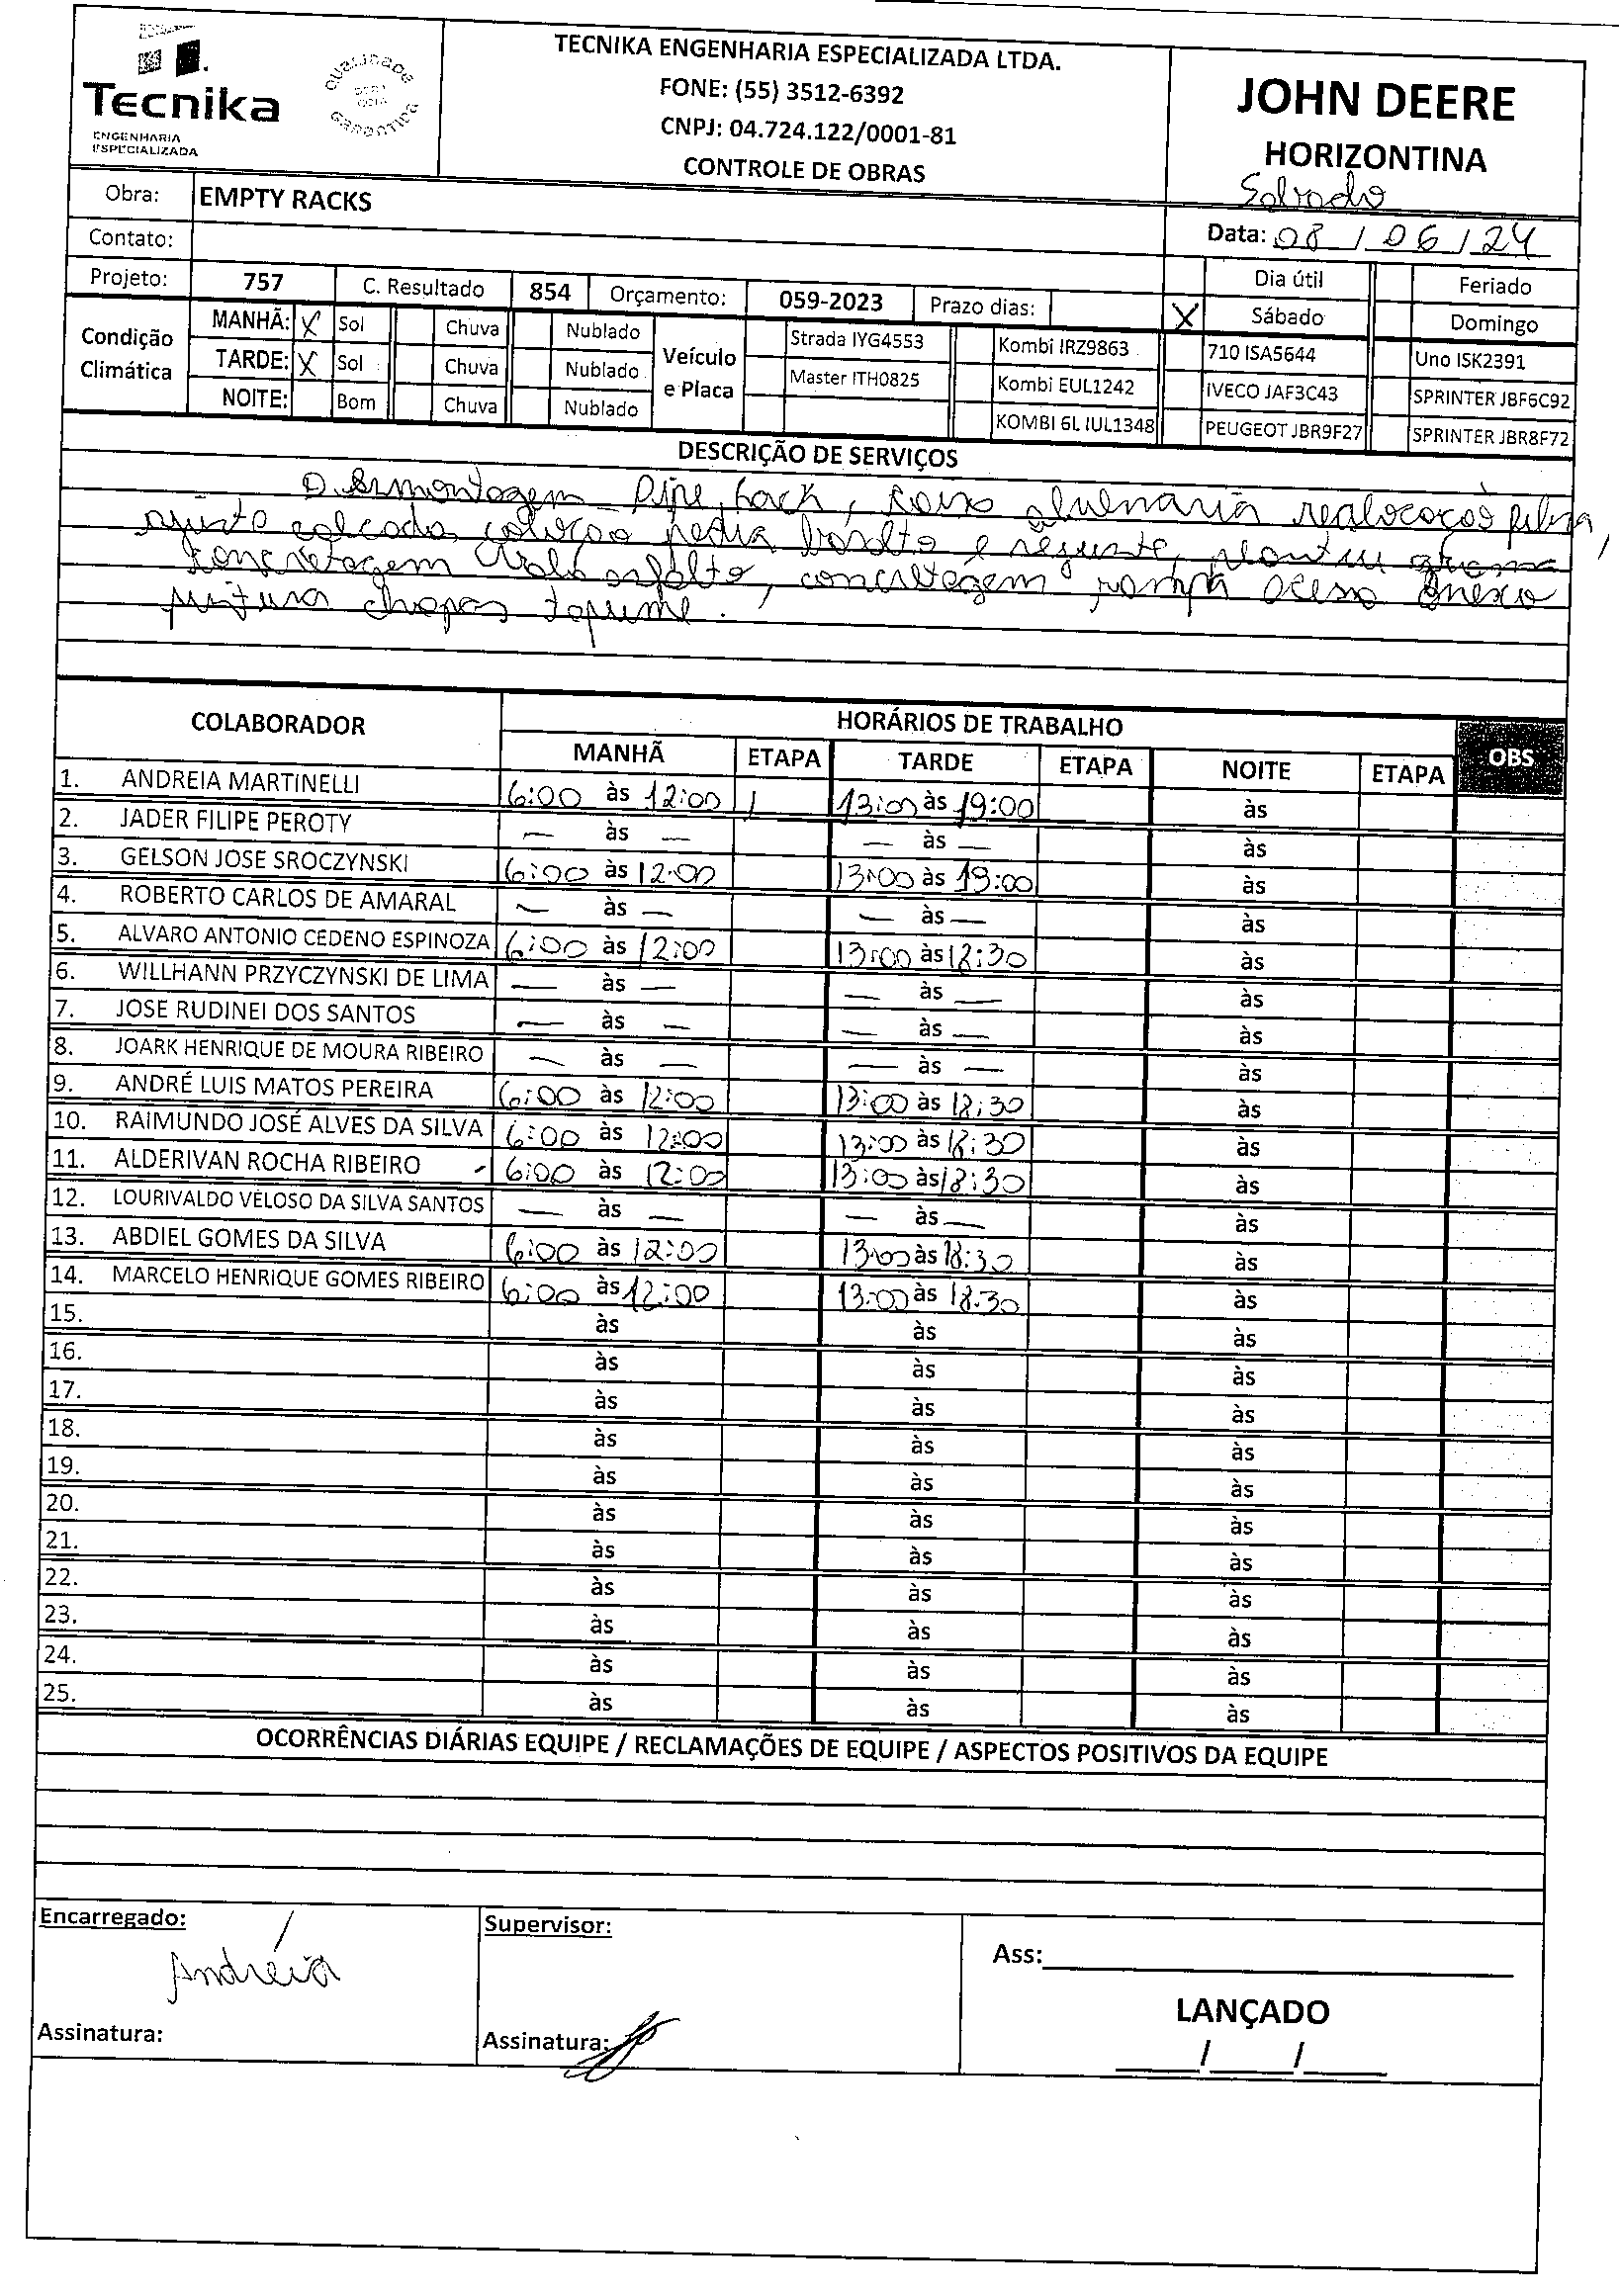 Tecnika
ENGENHARIA
ESPECIALIZADA
QUALIDADE
GARANTIDA
TECNIKA ENGENHARIA ESPECIALIZADA LTDA.
FONE: (55) 3512-6392
CNPJ: 04.724.122/0001-81
CONTROLE DE OBRAS
JOHN DEERE
HORIZONTINA
Sábado
Obra: EMPTY RACKS
Data: 08 / 06 / 24
Contato:
Projeto: 757 C. Resultado 854 Orçamento: 059-2023 Prazo dias:
Dia útil Feriado
X Sábado Domingo
Condição Climática
MANHÃ: X Sol Chuva Nublado
TARDE: X Sol Chuva Nublado
NOITE: Bom Chuva Nublado
Veículo e Placa
Strada IYG4553 Kombi IRZ9863 710 ISA5644 Uno ISK2391
Master ITH0825 Kombi EUL1242 IVECO JAF3C43 SPRINTER JBF6C92
KOMBI 6L IUL1348 PEUGEOT JBR9F27 SPRINTER JBR8F72
DESCRIÇÃO DE SERVIÇOS
Desmontagem Pipe Rack, caixa alvenaria realocação
ajuste calçada, pedra basalto e rejunte, plantiu grama
concretagem vala asfalto, concretagem rampa acesso anexo
pintura chapas tapume.
COLABORADOR HORÁRIOS DE TRABALHO OBS
MANHÃ ETAPA TARDE ETAPA NOITE ETAPA
1. ANDREIA MARTINELLI 6:00 às 12:00 1 13:00 às 19:00 às
2. JADER FILIPE PEROTY — às — — às — às
3. GELSON JOSE SROCZYNSKI 6:00 às 12:00 13:00 às 19:00 às
4. ROBERTO CARLOS DE AMARAL — às — — às — às
5. ALVARO ANTONIO CEDENO ESPINOZA 6:00 às 12:00 13:00 às 18:30 às
6. WILLHANN PRZYCZYNSKI DE LIMA — às — — às — às
7. JOSE RUDINEI DOS SANTOS — às — — às — às
8. JOARK HENRIQUE DE MOURA RIBEIRO — às — — às — às
9. ANDRÉ LUIS MATOS PEREIRA 6:00 às 12:00 13:00 às 18:30 às
10. RAIMUNDO JOSÉ ALVES DA SILVA 6:00 às 12:00 13:00 às 18:30 às
11. ALDERIVAN ROCHA RIBEIRO - 6:00 às 12:00 13:00 às 18:30 às
12. LOURIVALDO VELOSO DA SILVA SANTOS — às — — às — às
13. ABDIEL GOMES DA SILVA 6:00 às 12:00 13:00 às 18:30 às
14. MARCELO HENRIQUE GOMES RIBEIRO 6:00 às 12:00 13:00 às 18:30 às
15. às às às
16. às às às
17. às às às
18. às às às
19. às às às
20. às às às
21. às às às
22. às às às
23. às às às
24. às às às
25. às às às
OCORRÊNCIAS DIÁRIAS EQUIPE / RECLAMAÇÕES DE EQUIPE / ASPECTOS POSITIVOS DA EQUIPE
Encarregado: Supervisor:
Andréia
Ass:
LANÇADO
Assinatura: Assinatura:
/ /